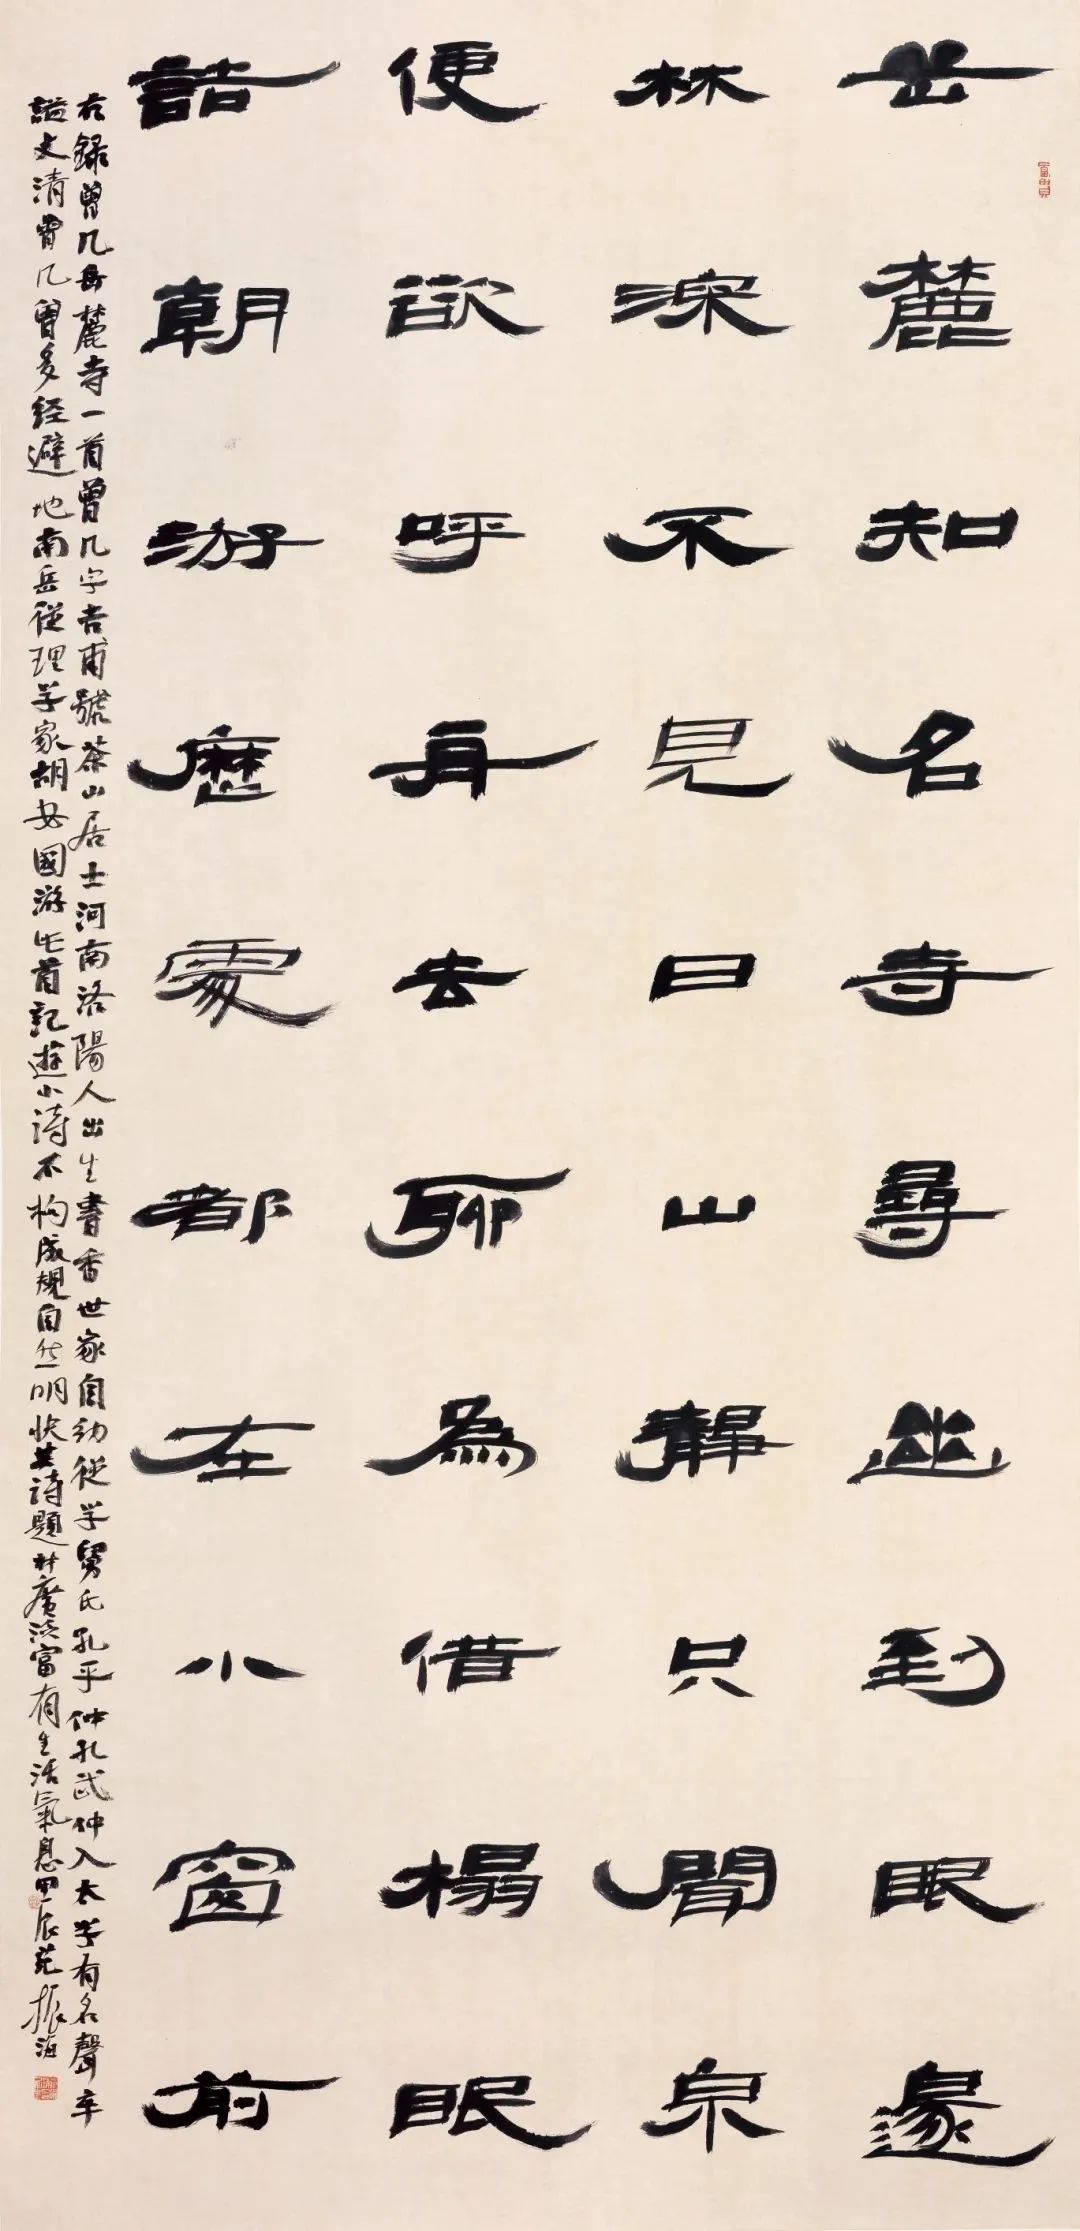 岳麓知名寺尋幽到眼邊
林深不見日山靜只聞泉
便欲呼舟去聊為借榻眠
詰朝游歷處都在小窗前
右録曾几岳麓寺一首曾几字吉甫號茶山居士河南洛陽人出生書香世家自幼從学舅氏孔平仲孔武仲入太学有名聲卒
謚文清曾几曾多經避地南岳從理学家胡安國游此首記遊小詩不构成規自然明快其詩題材廣泛富有生活氣息甲辰振海